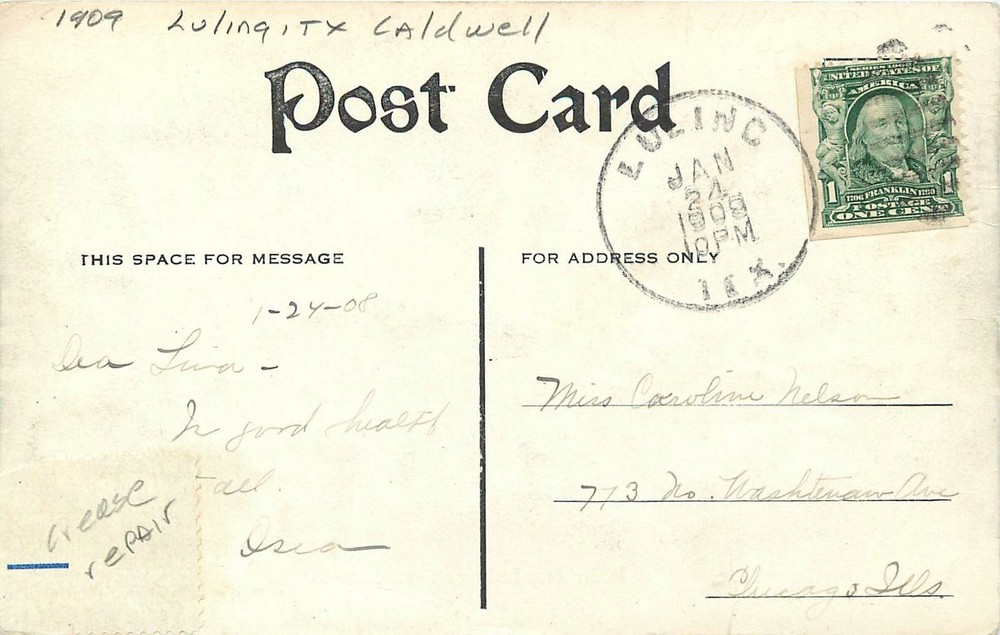 1909 Luling, TX Caldwell
Post Card
LULING
JAN
24
1909
10PM
TEX.
SERIES 1902
UNITED STATES OF
AMERICA
1706 FRANKLIN 1790
1
POSTAGE
ONE CENT
THIS SPACE FOR MESSAGE
FOR ADDRESS ONLY
1-24-08
Dea
In good health
all.
crease
repair
Miss Caroline Nelson
773 No. Washtenaw Ave
Chicago Ills.